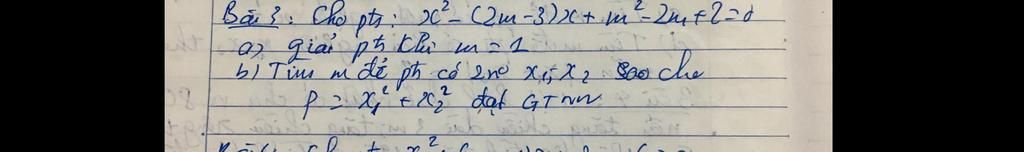 Bài 3: Cho ptr: x² - (2m-3)x + m² - 2m + 2 = 0
a) giải pt khi m = 1
b) Tìm m để pt có 2no x₁; x₂ sao cho
P = x₁² + x₂² đạt GTNN